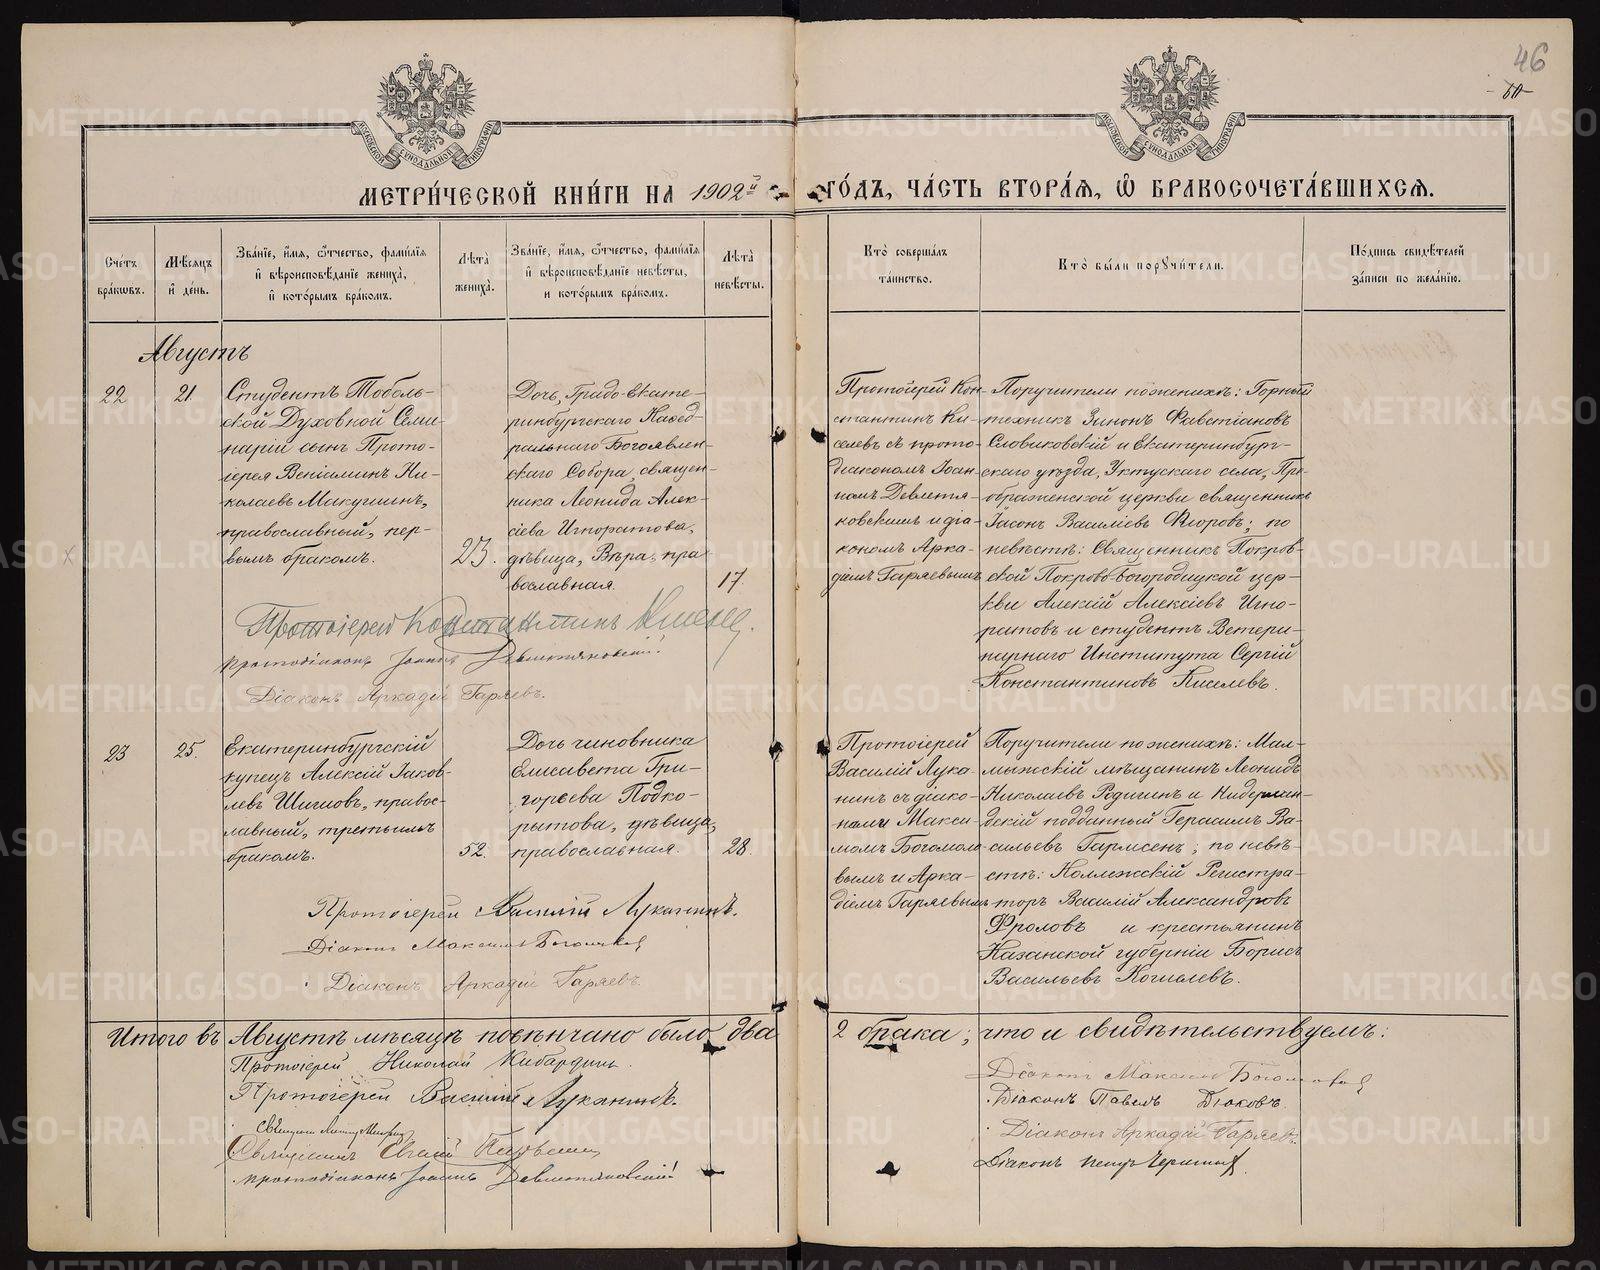 46
МЕТРИ́ЧЕСКОЙ КНИ́ГИ НА 1902й ГО́ДЪ, ЧА́СТЬ ВТОРА́Я, Ѽ БРАКОСОЧЕТА́ВШИХСѦ.
Сче́тъ бра́кѡвъ.
Мѣ́сѧцъ и҆ де́нь.
Зва́нїе, и҆́мѧ, ѻ҆́тчество, фами́лїѧ и҆ вѣроисповѣ́данїе жениха̀, и҆ кото́рымъ бра́комъ.
Лѣ́та жениха̀.
Зва́нїе, и҆́мѧ, ѻ҆́тчество, фами́лїѧ и҆ вѣроисповѣ́данїе невѣ́сты, и кото́рымъ бра́комъ.
Лѣ́та невѣ́сты.
Кто̀ соверша́лъ та́инство.
Кто̀ бы́ли порꙋчи́тели.
По́дпись свидѣ́телей за́писи по жела́нїю.
Августъ
22
21.
Студентъ Тоболь-
ской Духовной Семи-
наріи сынъ Прото-
іерея Веніаминъ Ни-
колаевъ Макушинъ,
православный, пер-
вымъ бракомъ.
23.
Дочь, Градо-Екате-
ринбургскаго Каѳед-
ральнаго Богоявлен-
скаго Собора, священ-
ника Леонида Алек-
сіева Игноратова,
дѣвица, Вѣра, пра-
вославная.
17.
Протоіерей Кон-
стантинъ Ки-
селевъ съ прото-
діакономъ Іоан-
номъ Девлетья-
новскимъ и діа-
кономъ Арка-
діемъ Гаряевымъ
Поручители по женихѣ: Горный
техникъ Зинонъ Фавстіановъ
Словиковскій и Екатеринбург-
скаго уѣзда, Уктусскаго села, Пре-
ображенской церкви священникъ
Іасонъ Василіевъ Флоровъ; по
невѣстѣ: Священникъ Покров-
ской Покрово-Богородицкой цер-
кви Алексій Алексіевъ Игно-
ратовъ и студентъ Ветери-
нарнаго Института Сергій
Константиновъ Киселевъ.
Протоіерей Константинъ Киселевъ.
протодіаконъ Іоаннъ Девлетьяновскій.
Діаконъ Аркадій Гаряевъ.
23
25.
Екатеринбургскій
купецъ Алексій Іаков-
левъ Шишовъ, правос-
лавный, третьимъ
бракомъ.
52.
Дочь чиновника
Елисавета Гри-
горьева Подко-
рытова, дѣвица,
православная.
28.
Протоіерей
Василій Лука-
нинъ съ діако-
нами Макси-
момъ Богомоло-
вымъ и Арка-
діемъ Гаряевымъ
Поручители по женихѣ: Мал-
мыжскій мѣщанинъ Леонидъ
Николаевъ Родигинъ и Нидерлан-
дскій подданный Герасимъ Ва-
сильевъ Гармсенъ; по невѣ-
стѣ: Коллежскій Регистра-
торъ Василій Александровъ
Фроловъ и крестьянинъ
Казанской губерніи Борисъ
Васильевъ Кошелевъ.
Протоіерей Василій Луканинъ.
Діаконъ Максимъ Богомоловъ
Діаконъ Аркадій Гаряевъ.
Итого въ Августѣ мѣсяцѣ повѣнчано было два 2 брака; что и свидѣтельствуемъ:
Протоіерей Николай Кибардинъ.
Протоіерей Василій Луканинъ.
протодіаконъ Іоаннъ Девлетьяновскій
Діаконъ Максимъ Богомоловъ
Діаконъ Павелъ Дьяковъ.
Діаконъ Аркадій Гаряевъ.
METRIKI.GASO-URAL.RU